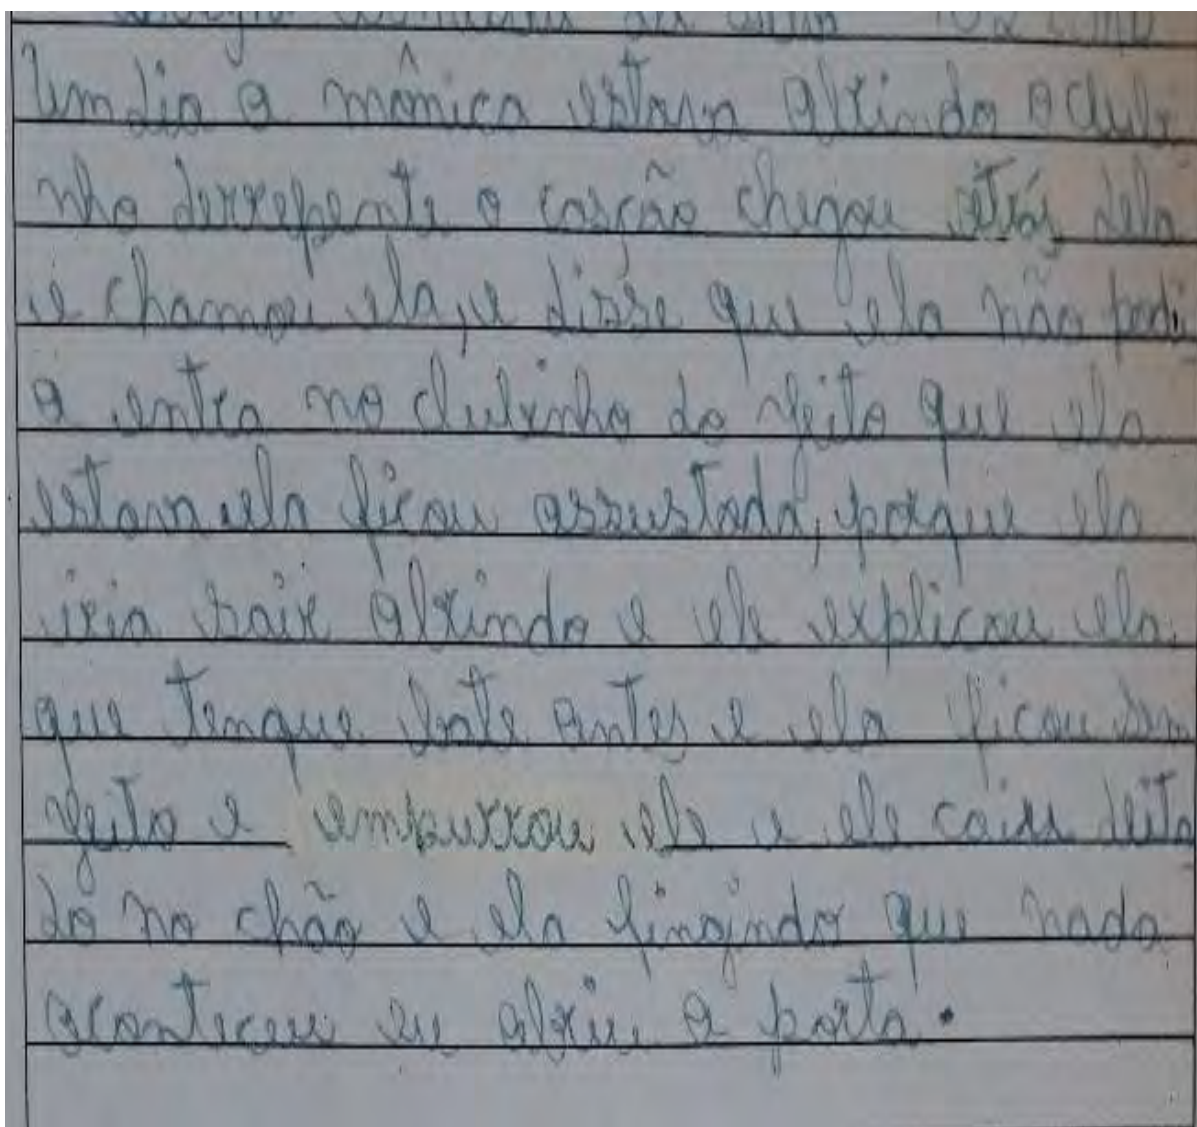 Um dia a mônica estava abrindo o clubi
nho derrepente o cascão chegou atrás dela
e chamou ela, e disse que ela não podi
a entra no clubinho do jeito que ela
estava ela ficou assustada, porque ela
iria sair abrindo e ele explicou ela
que tenque bate antes e ela ficou sem
jeito e empurrou ele e ele caiu deita
do no chão e ela fingindo que nada
aconteceu eu abriu a porta.